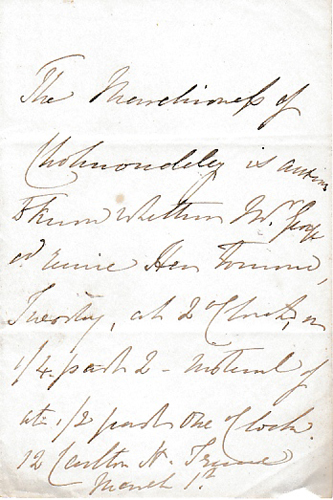 The Marchioness of
Cholmondeley is anxious
to know whether Mr. George
cd receive Her Tomorrow,
Tuesday, at 2 o'Clock, or
1/4 past 2 - instead of
at 1/2 past One o'Clock.
12 Carlton H. Terrace
March 1st